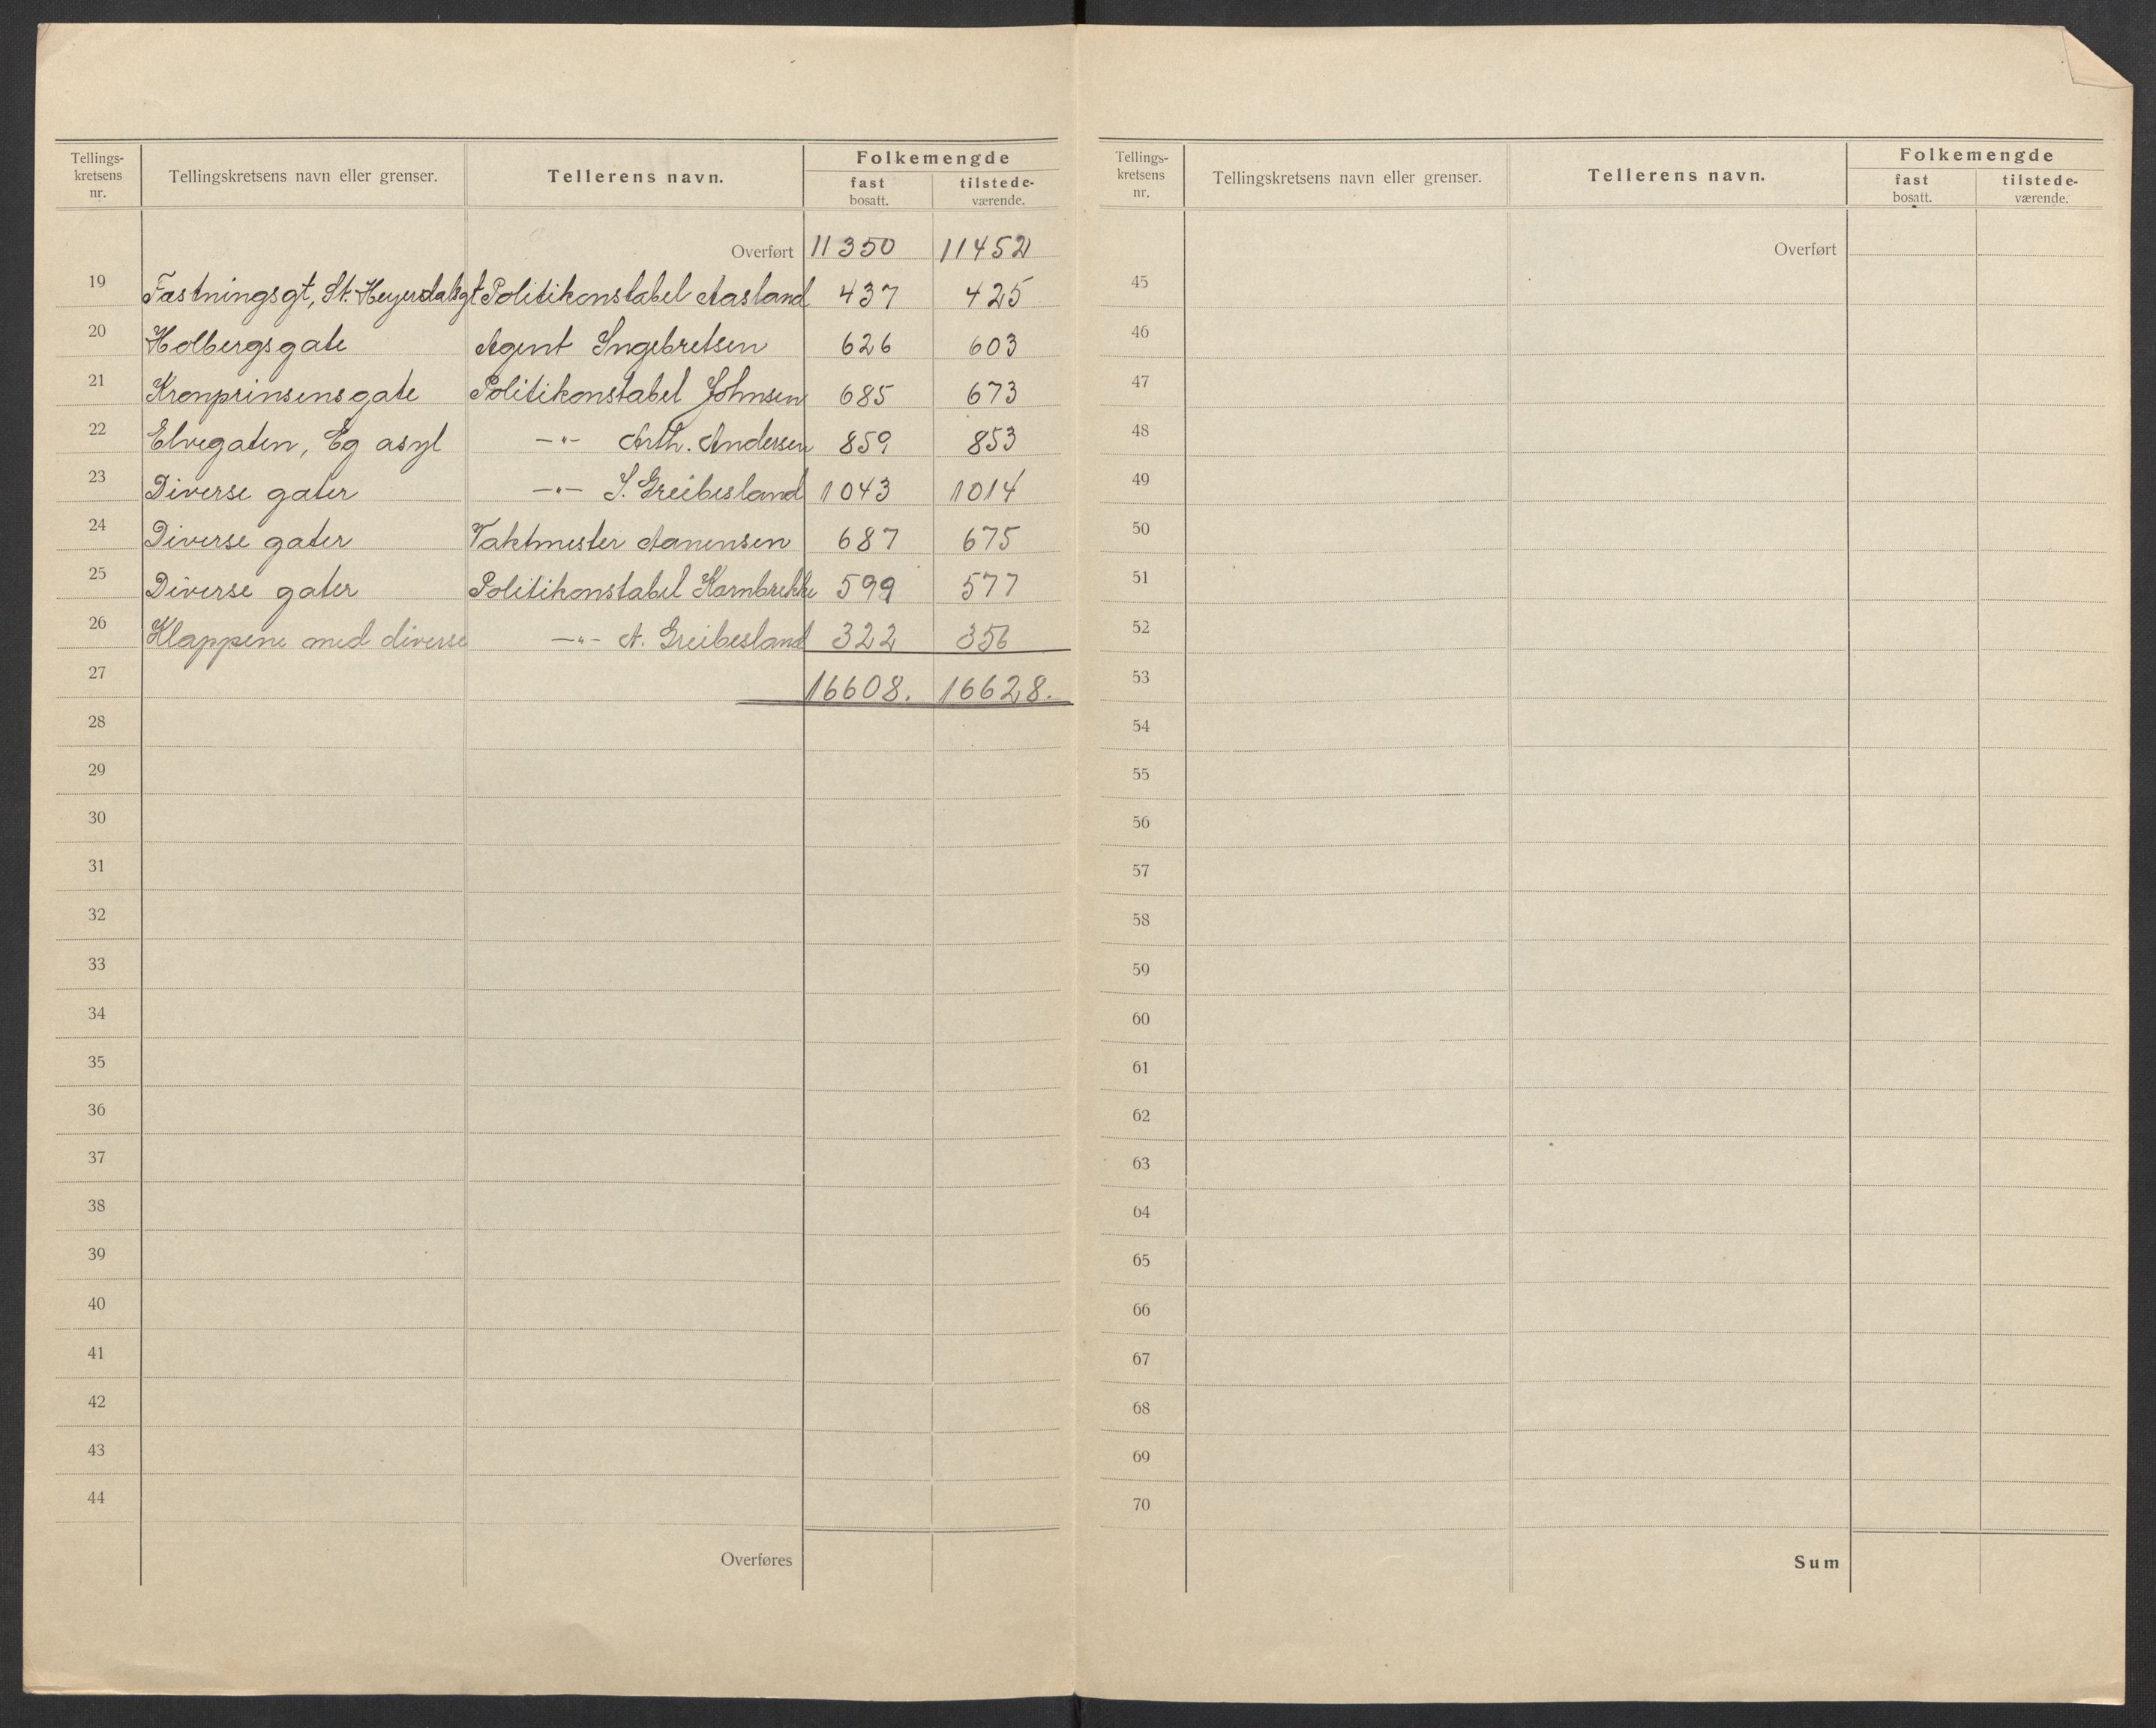 Tellings-
kretsens
nr.
Tellingskretsens navn eller grenser.
Tellerens navn.
Folkemengde
fast
bosatt.
tilstede-
værende.
Overført 11350 11452
19 Fæstningsgt, St. Heyerdalsgt Politikonstabel Aasland 437 425
20 Holbergsgate Agent Ingebretsen 626 603
21 Kronprinsensgate Politikonstabel Johnsen 685 673
22 Elvegaten, Eg asyl —"— Arth. Andersen 859 853
23 Diverse gater —"— S. Greibesland 1043 1014
24 Diverse gater Vaktmester Aanensen 687 675
25 Diverse gater Politikonstabel Kornbrekke 599 577
26 Klappene med diverse —"— A. Greibesland 322 356
27 16608. 16628.
28
29
30
31
32
33
34
35
36
37
38
39
40
41
42
43
44
Overføres
Tellings-
kretsens
nr.
Tellingskretsens navn eller grenser.
Tellerens navn.
Folkemengde
fast
bosatt.
tilstede-
værende.
Overført
45
46
47
48
49
50
51
52
53
54
55
56
57
58
59
60
61
62
63
64
65
66
67
68
69
70
Sum